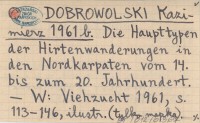 DOBROWOLSKI Kazi-
mierz 1961.b. Die Haupttypen
der Hirtenwanderungen in
den Nordkarpaten vom 14.
bis zum 20. Jahrhundert.
— W: Viehzucht 1961, s.
113-146, ilustr. (tylko mapka).